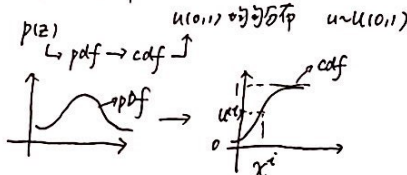 u(0,1) 的均匀分布 u~U(0,1)
p(z)
↳ pdf → cdf
pdf
cdf
1
u⁽ⁱ⁾
0
xⁱ